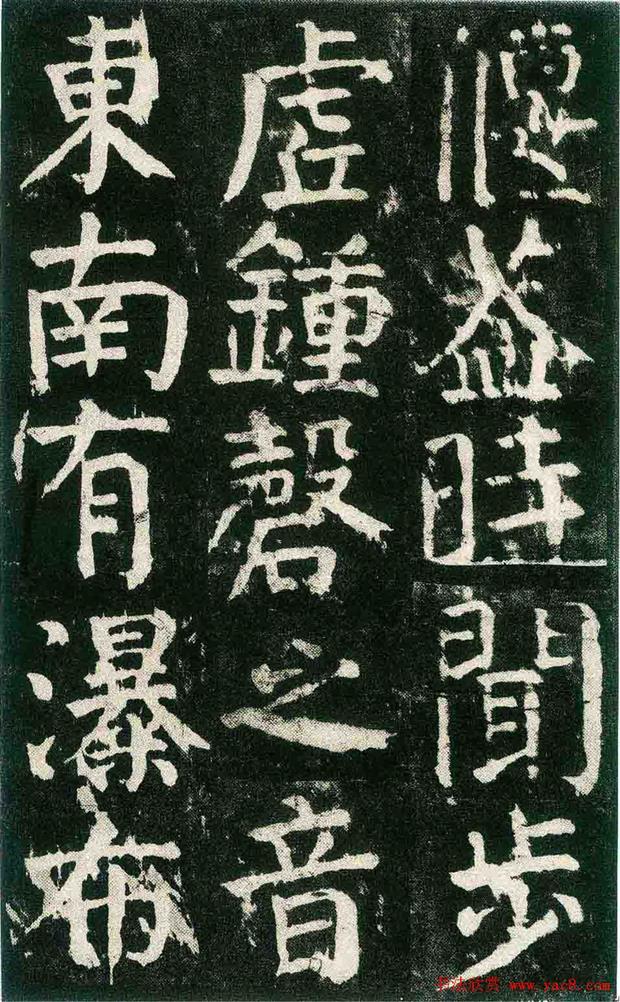 偃蓋時聞步
虛鍾磬之音
東南有瀑布
书法欣赏 www.yac8.com